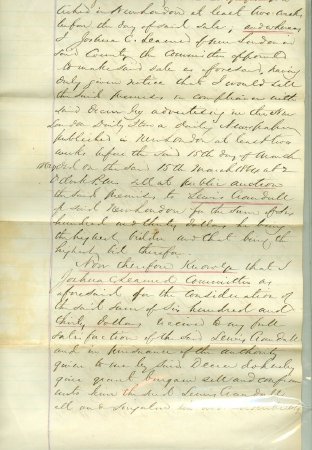 lished in New London at least two weeks
before the day of said sale, and whereas
I Joshua C. Learned of New London in
said County the Committee appointed
to make said sale as aforesaid, having
duly given notice that I would sell
the said premises in compliance with
said Decree by advertising in the New
London Daily Star a daily Newspaper
published in New London at least two
weeks before the said 15th day of March
did on the said 15th March 1864 at 2
O'clock P.M. sell at public auction
the said premises to Lewis Crandall
of said New London for the sum of six
hundred and thirty dollars he being
the highest bidder and that being the
highest bid therefor
Now therefore Know ye that I
Joshua C Learned Committee as
aforesaid for the consideration of
the said sum of Six hundred and
thirty Dollars received to my full
satisfaction of the said Lewis Crandall
and in pursuance of the authority
given to me by said Decree do hereby
give grant bargain sell and confirm
unto him the said Lewis Crandall
all and singular